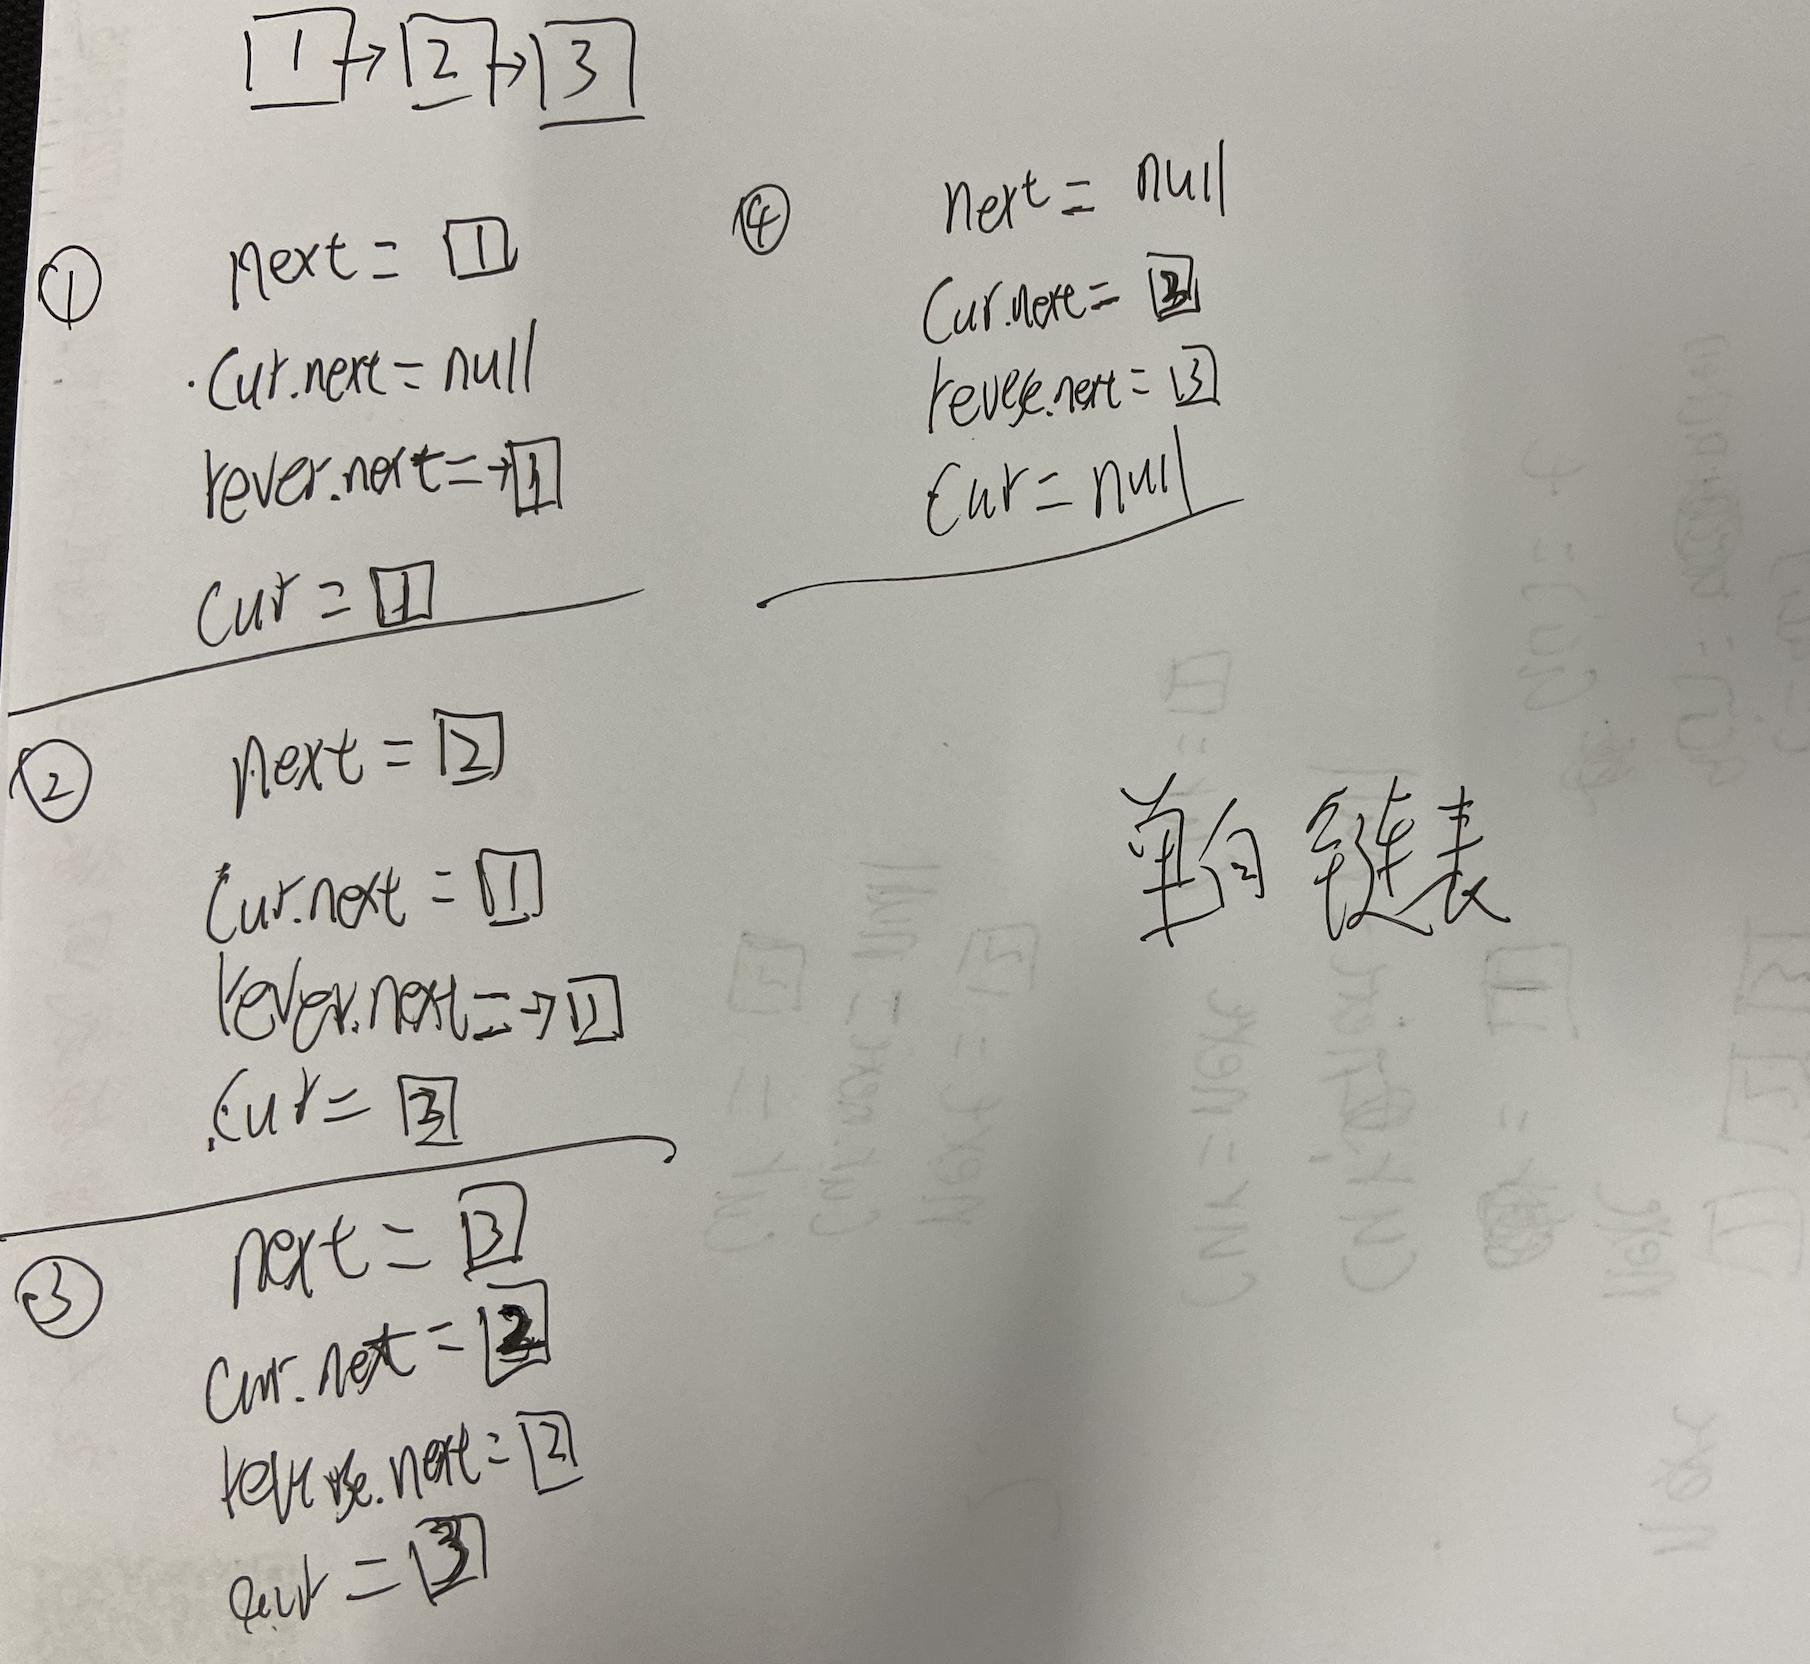 1 → 2 → 3
① next = 1
cur.next = null
rever.next = → 1
cur = 1
② next = 2
cur.next = 1
rever.next = → 1
cur = 3
③ next = 3
cur.next = 2
reverse.next = 2
cur = 3
④ next = null
cur.next = 3
reverse.next = 3
cur = null
单向链表